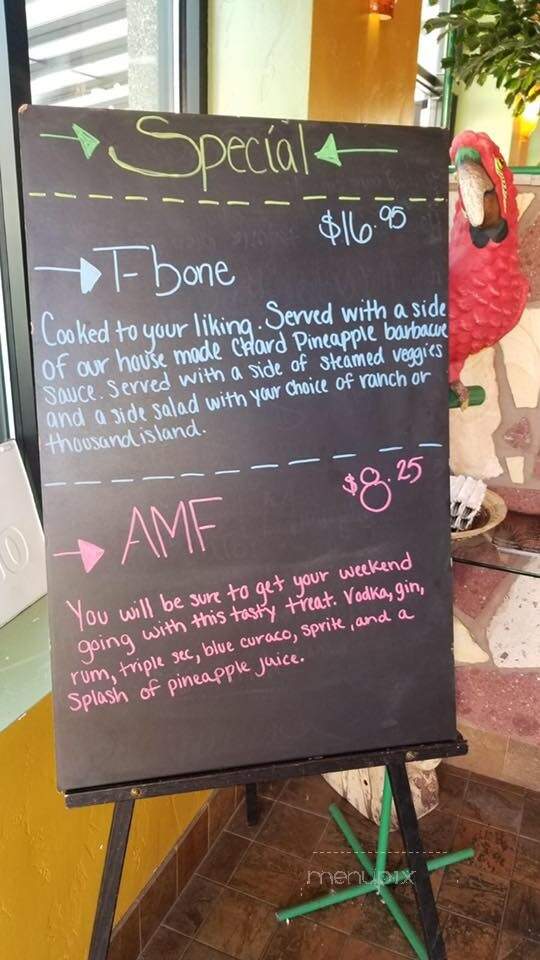 Special
$16.95
T-bone
Cooked to your liking. Served with a side
of our house made Chard Pineapple barbacue
sauce. Served with a side of steamed veggies
and a side salad with your choice of ranch or
thousand island.
$8.25
AMF
You will be sure to get your weekend
going with this tasty treat. Vodka, gin,
rum, triple sec, blue curaco, sprite, and a
splash of pineapple juice.
10
menupix